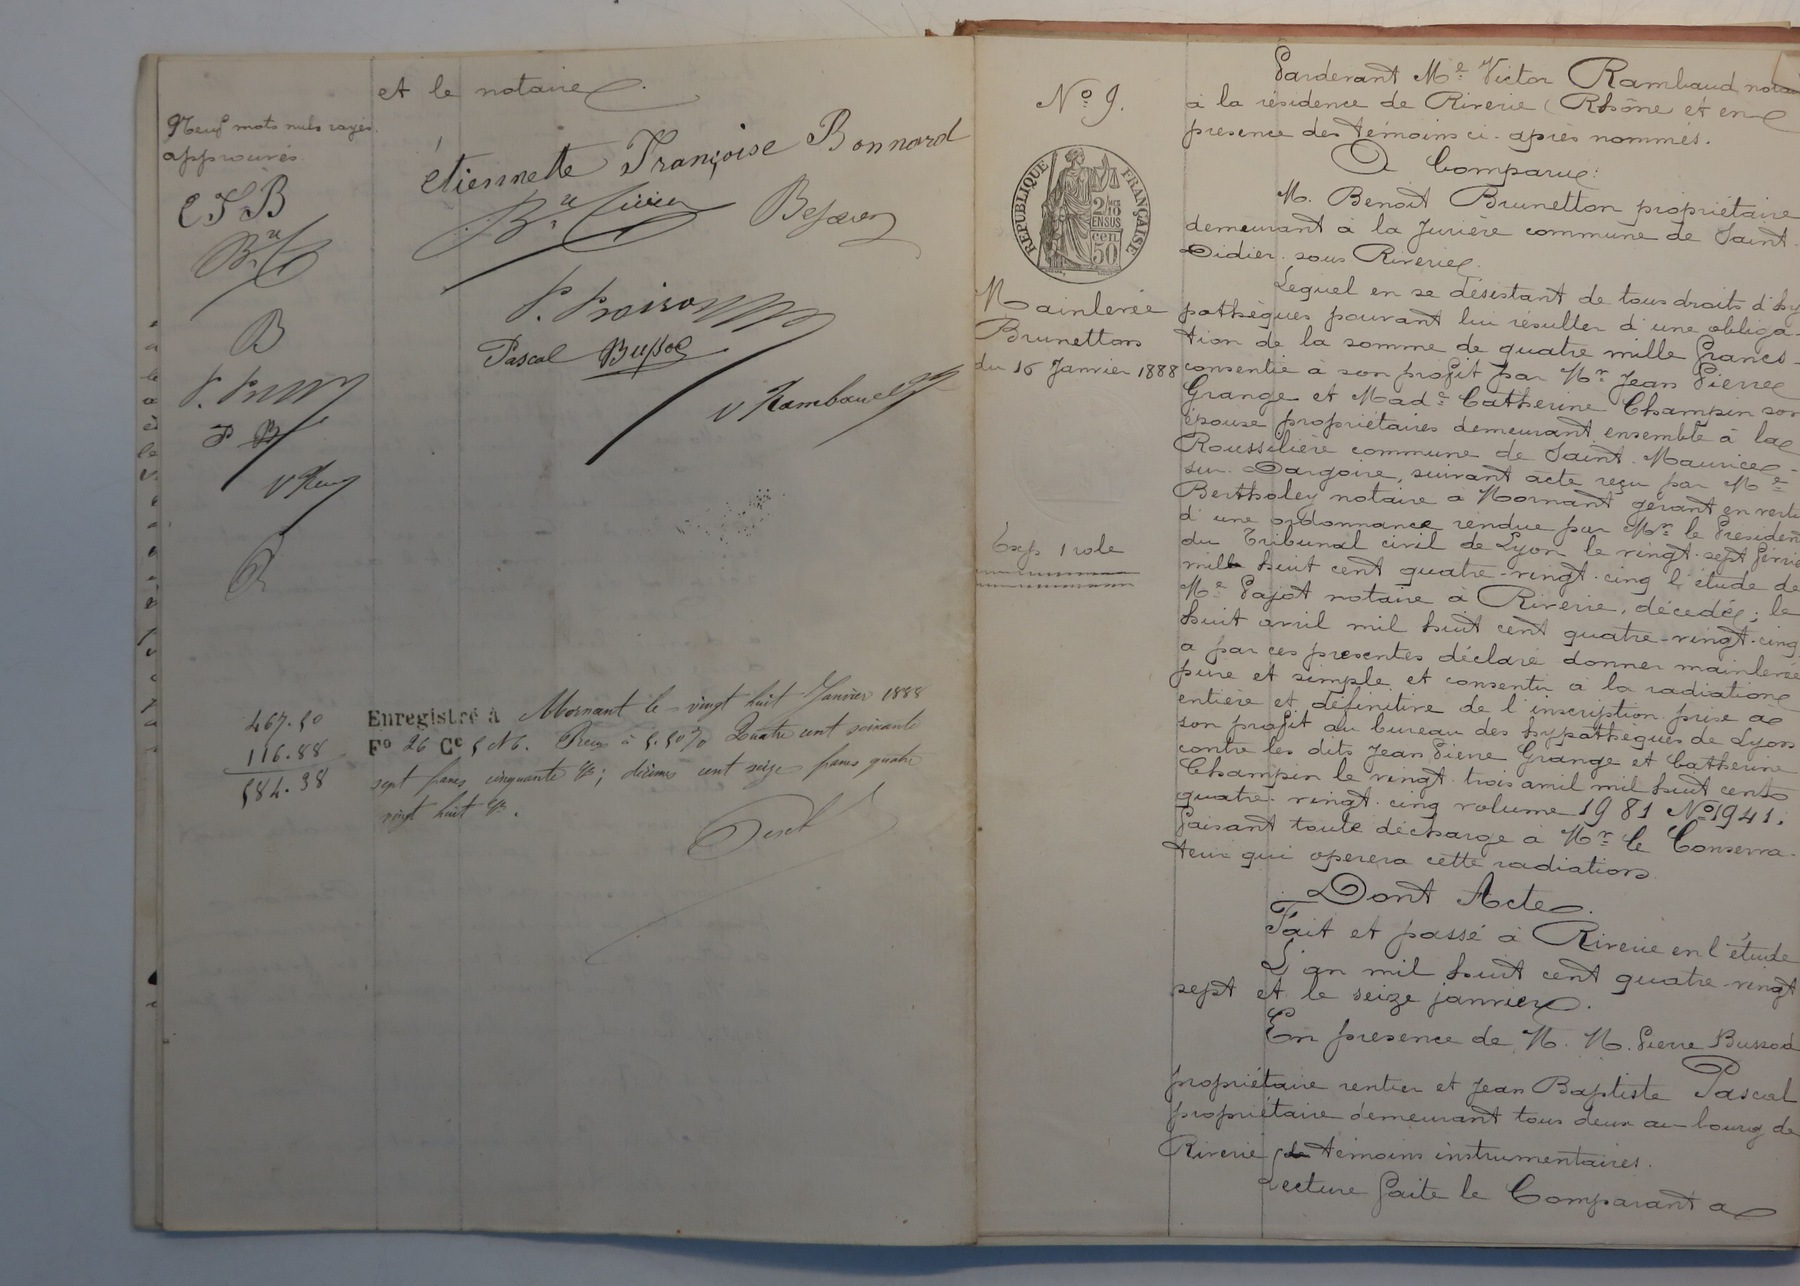 et le notaire.
Neuf mots nuls rayés
approuvés
E F B
B
P B
étiennette Françoise Bonnard
P. Proison
Pascal Bussod
V Rambaud
467.50
116.88
584.38
Enregistré à Mornant le vingt huit Janvier 1888
Fº 26 Ce 5 Reçu à 5.50% Quatre cent soixante
sept francs cinquante ces; décimes cent seize francs quatre
vingt huit ces.
Nº 9.
RÉPUBLIQUE FRANÇAISE
2/10 EN SUS
cen 50
Mainlevée
Brunetton
du 16 Janvier 1888
Exp 1 role
Pardevant Me Victor Rambaud, notai
à la résidence de Riverie (Rhône et en
presence des témoins ci-après nommés.
A Comparu:
M. Benoît Brunetton propriétaire
demeurant à la Jurière commune de Saint-
Didier-sous Riverie.
Lequel en se désistant de tous droits d'hy
pothèques pouvant lui résulter d'une obliga-
tion de la somme de quatre mille francs
consentie à son profit par Mr Jean Pierre
Grange et Made Catherine Champin son
épouse propriétaires demeurant ensemble à la
Roussilière commune de Saint-Maurice-
sur-Dargoire, suivant acte reçu par Me
Bertholey notaire à Mornant gérant en vertu
d'une ordonnance rendue par Mr le Président
du Tribunal civil de Lyon le vingt-sept févrie
mille huit cent quatre-vingt-cinq l'étude de
Me Pajot notaire à Riverie, décedé; le
huit avril mil huit cent quatre-vingt-cinq
a par ces presentes déclaré donner mainlevée
pure et simple et consentir à la radiation
entière et définitive de l'inscription prise à
son profit au bureau des hypothèques de Lyon
contre les dits Jean Pierre Grange et Catherine
Champin le vingt-trois avril mil huit cent
quatre-vingt-cinq volume 1981 Nº 1941.
Faisant toute décharge à Mr le Conserva-
teur qui operera cette radiation
Dont Acte.
Fait et passé à Riverie en l'étude
L'an mil huit cent quatre-vingt
sept et le seize janvier.
En presence de M. M. Pierre Bussod
propriétaire rentier et Jean Baptiste Pascal
propriétaire demeurant tous deux au bourg de
Riverie témoins instrumentaires.
Lecture faite le Comparant a